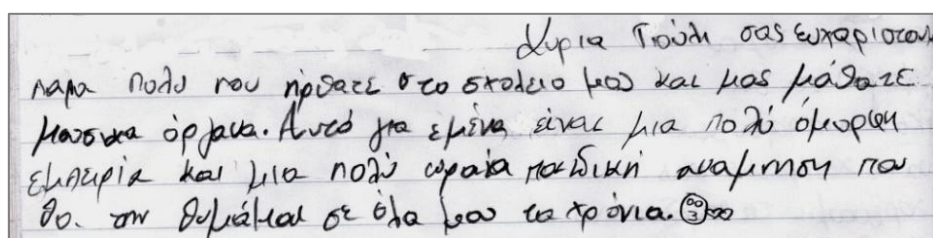 Κυρια Γιούλη σας ευχαριστουμε
παρα πολυ που ήρθατε στο σχολειο μας και μας μάθατε
μουσικα όργανα. Αυτό για έμενα, είναι μια πολύ όμορφη
εμπειρία και μια πολύ ωραία παιδική αναμνηση που
θα την θυμάμαι σε όλα μου τα χρόνια.